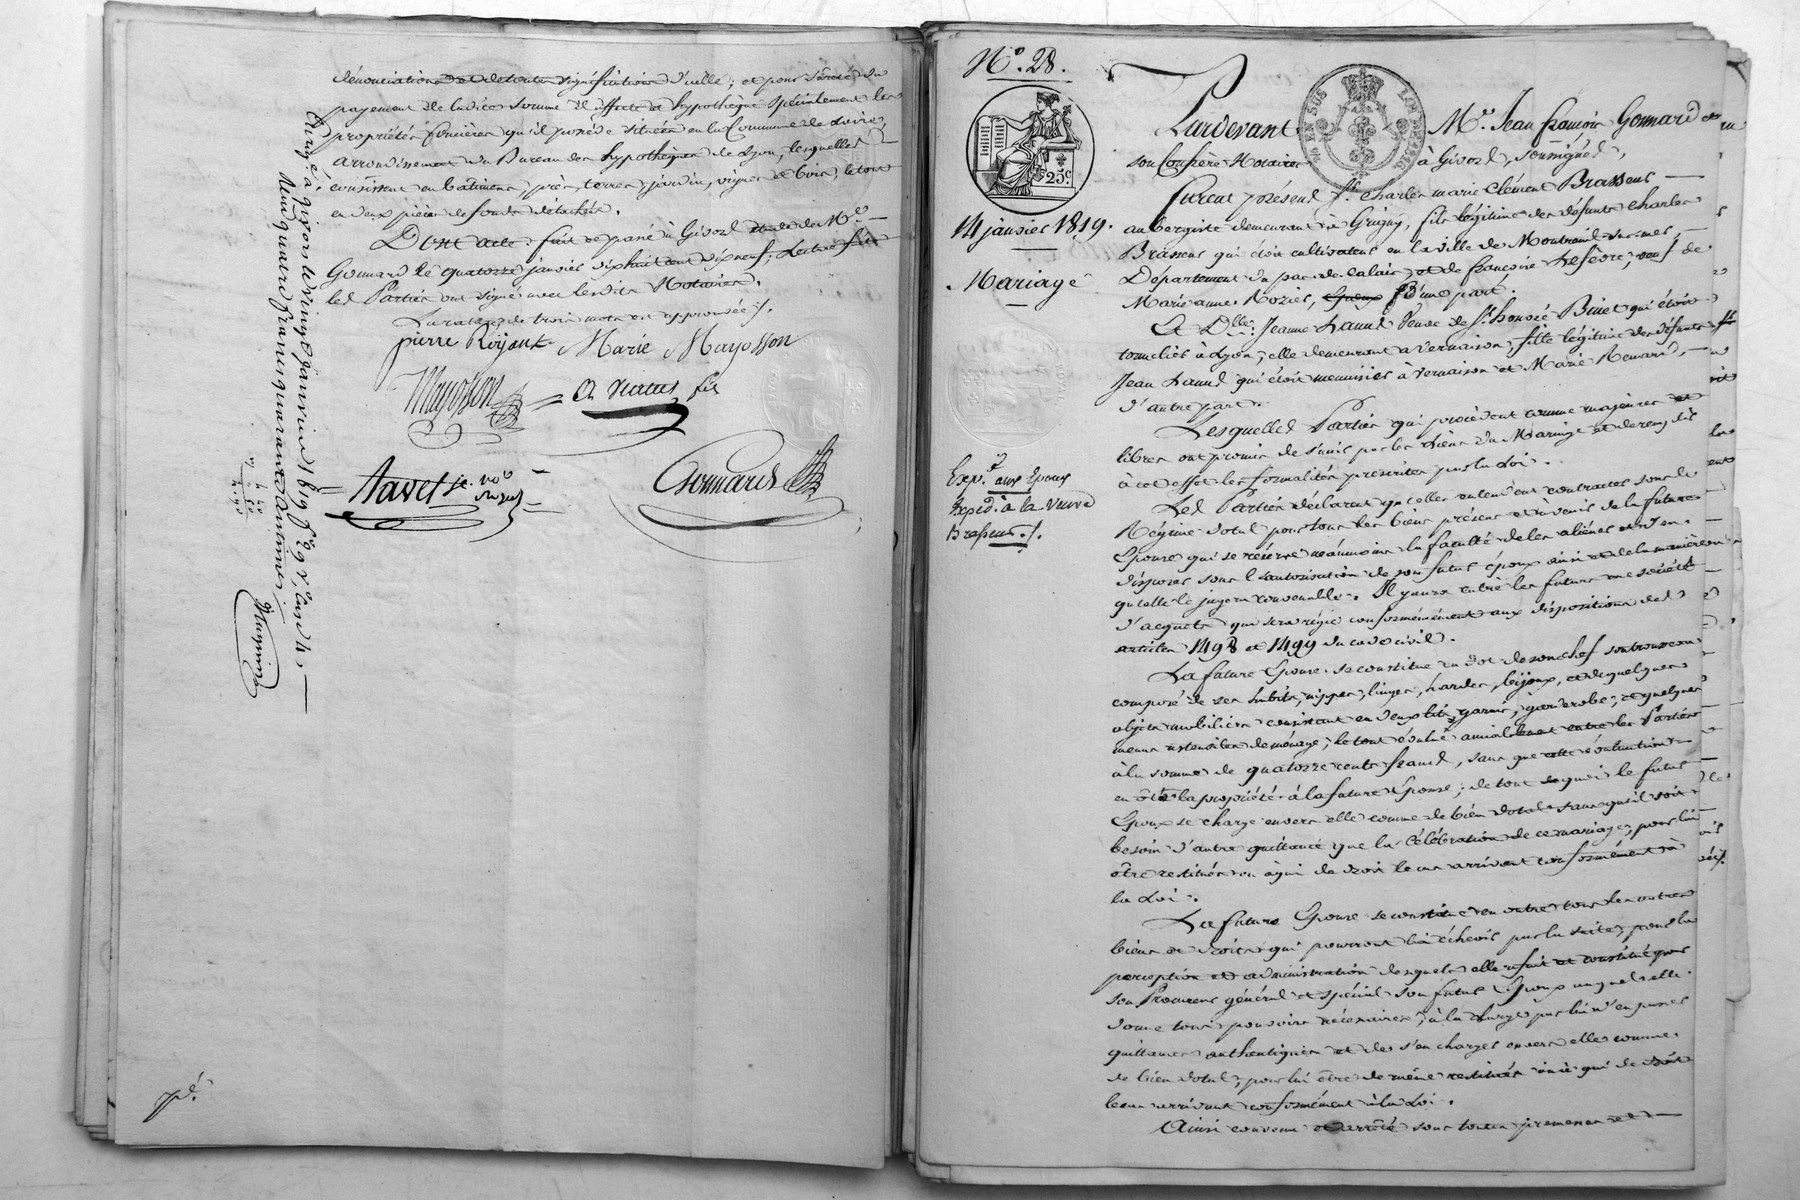 dénonciation et de toutes significations d'icelle ; et pour sûreté du
payement de ladite somme il affecte et hypothèque spécialement les
propriétés foncières qu'il possède situées en la Commune de Loire,
arrondissement du Bureau des hypothèques de Lyon, lesquelles
consistent en bâtimens, près, terres, jardin, vignes et bois, le tout
en deux pièces de fonds détachés.
Dont acte : fait et passé à Givors, étude de Me
Gonnard le quatorze janvier dix huit cent dix neuf ; Lecture faite
les Parties ont signé avec lesdits Notaires.
La rature de trois mots est approuvée ./.
pierre Rivjont Marie Mayosson
Mayosson
Navet
Gonnard
Enreg. à givors le vingt janvier 1819 fo 29 vo case 4,
Reçu quatre francs quarante centimes
No. 28.
25c.
14 janvier 1819.
Mariage
Expd. aux Epoux
Expéd. à la veuve
Brassens ./.
Pardevant Me. Jean françois Gonnard et
son Confrère Notaires à Givors, soussignés,
Furent présens Sr. Charles marie Clément Brassens
aubergiste demeurant à Grigny, fils légitime des défunts Charles
Brassens qui étoit cultivateur en la ville de Montreuil sur mer,
Département du pas de Calais, et de françoise Lefèvre, veuf de
Marie anne Rozier, d'une part.
Et Dlle. Jeanne Laund Veuve de Sr. honoré Binet qui étoit
tonnelier à Lyon, elle demeurant à Vernaison, fille légitime des défunts
Jean Laund qui étoit menuisier à Vernaison et Marie Renard,
d'autre part.
Lesquelles Parties qui procèdent comme majeures et
libres ont promis de s'unir par les liens du Mariage et de remplir
à cet effet les formalités prescrites par la Loi.
Les Parties déclarent qu'elles entendent contracter sous le
Régime dotal pour tous les biens présens et à venir de la future
Epouse qui se réserve néanmoins la faculté de les aliéner et d'en
disposer sous l'autorisation de son futur époux ainsi et de la manière
qu'elle le jugera convenable. Il y aura entre les futurs une société
d'acquêts qui sera régie conformément aux dispositions des
articles 1498 et 1499 du code civil.
La future Epouse se constitue en dot de son chef son trousseau
composé de ses habits, nippes, linges, hardes, bijoux, et de quelques
objets mobiliers consistant en deux lits garnis, garderobe, et quelques
menus ustensiles de ménage ; le tout évalué amiablement entre les Parties
à la somme de quatorze cents francs, sans que cette évaluation
en ôte la propriété à la future Epouse ; de tout de quoi le futur
Epoux se charge envers elle comme de bien dotal sans qu'il soit
besoin d'autre quittance que la Célébration de ce mariage, pour lui
être restitué ou à qui de droit le cas arrivant conformément à
la Loi.
La future Epouse se constitue en outre tous les autres
biens et droits qui pourront lui échoir par la suite ; pour la
perception et administration desquels elle a fait et constitué pour
son Procureur général et spécial son futur Epoux auquel elle
donne tous pouvoirs nécessaires, à la charge par lui d'en passer
quittances authentiques et de s'en charger envers elle comme
de bien dotal, pour lui être de même restitués ou à qui de droit
le cas arrivant conformément à la Loi.
Ainsi convenu et arrêté sous toutes promesses et